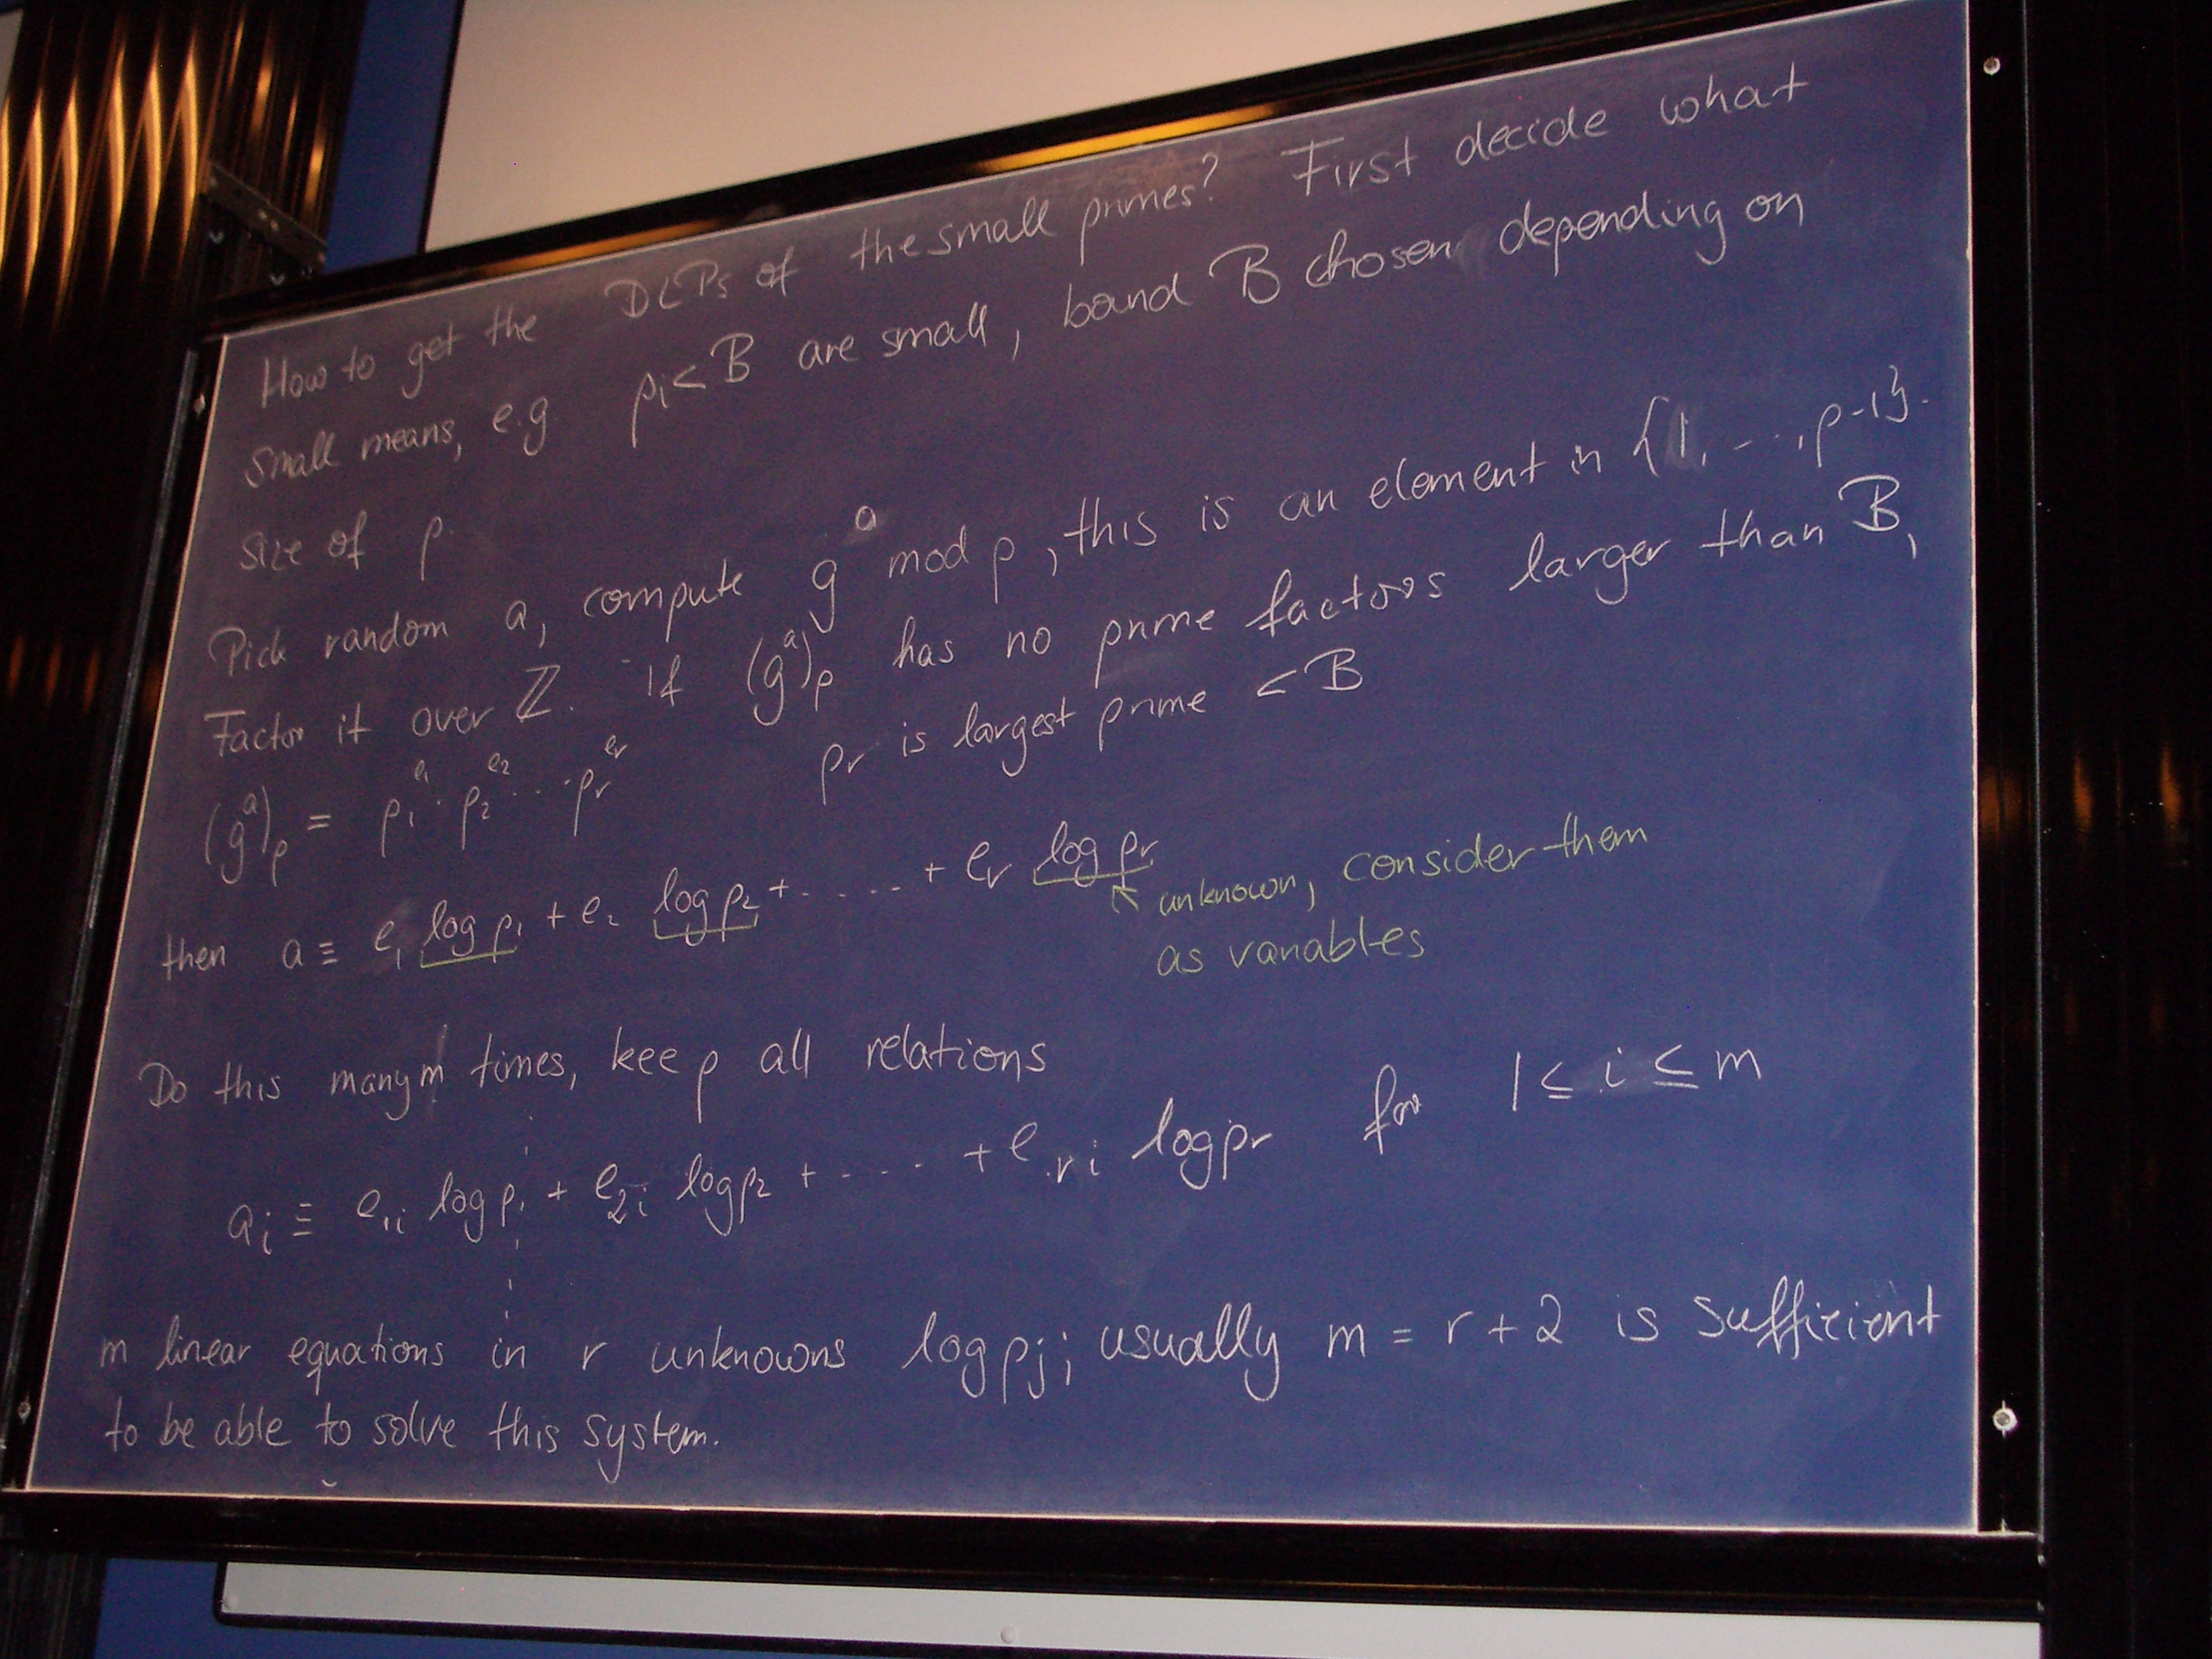 How to get the DLPs of the small primes? First decide what
small means, e.g. pᵢ < B are small, bound B chosen depending on
size of p.
Pick random a, compute gᵃ mod p, this is an element in {1, ..., p-1}.
Factor it over ℤ. If (gᵃ)ₚ has no prime factors larger than B,
(gᵃ)ₚ = p₁^e₁ · p₂^e₂ ... · pᵣ^eᵣ pᵣ is largest prime < B
then a ≡ e₁ log p₁ + e₂ log p₂ + ..... + eᵣ log pᵣ
unknown, consider them
as variables
Do this many m times, keep all relations
aᵢ ≡ e₁ᵢ log p₁ + e₂ᵢ log p₂ + .... + eᵣᵢ log pᵣ for 1 ≤ i ≤ m
m linear equations in r unknowns log pⱼ; usually m = r + 2 is sufficient
to be able to solve this system.